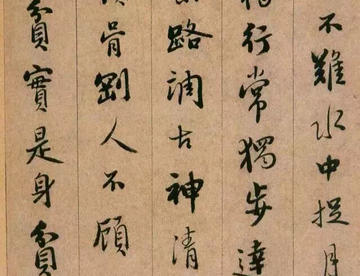 不難水中捉月
獨行常獨步達
路調古神清
骨剛人不顧
貧實是身貧